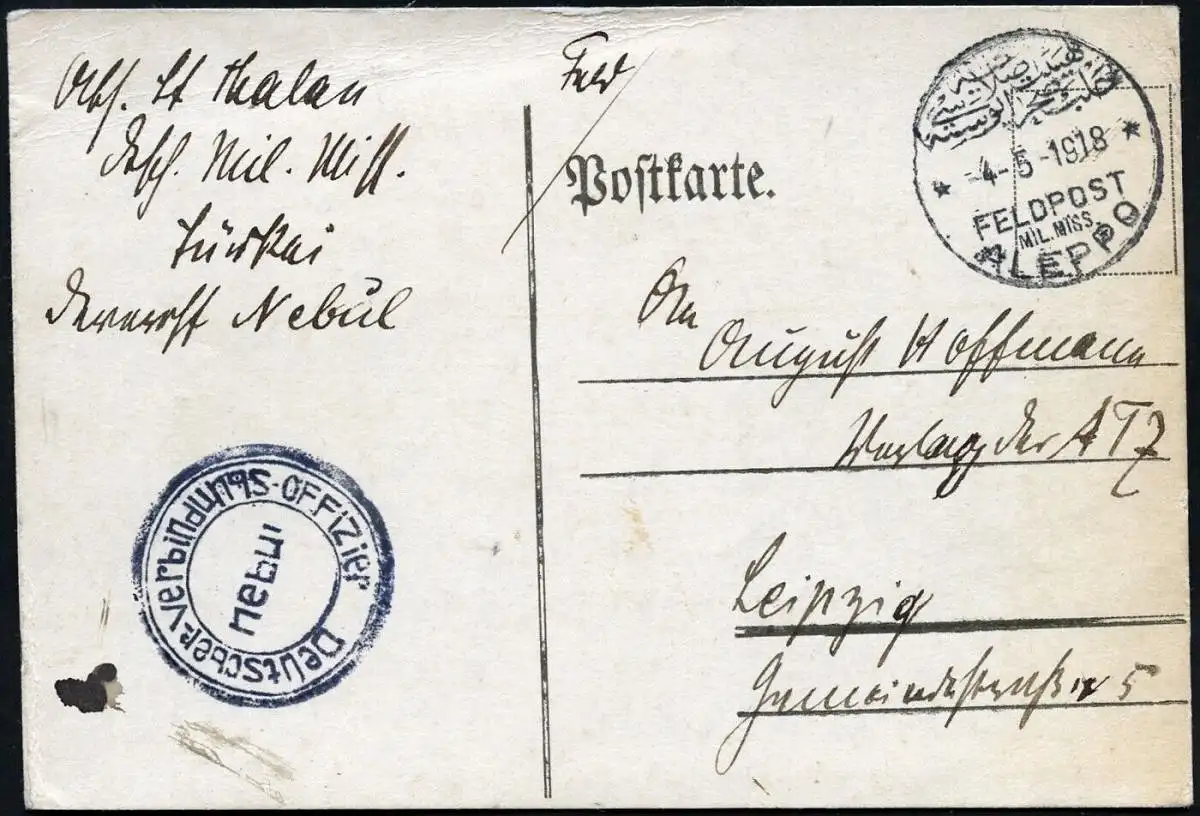 Abs. Lt Thalan
Dtsch. Mil. Miss.
Türkei
Nebul
Deutscher-Verbindungs-Offizier
nebul
Feld
Postkarte.
-4-5-1918
FELDPOST
MIL.MISS.
ALEPPO
An
August Hoffmann
Verlag der ATZ
Leipzig
Gemeindestraße 5